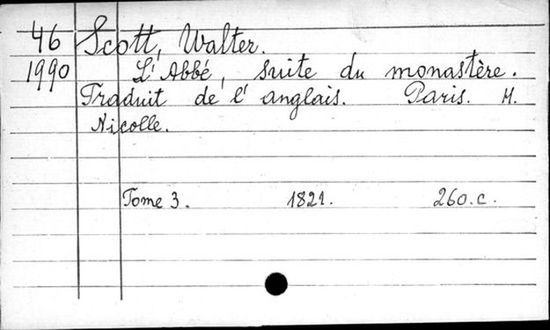 46 Scott, Walter.
1990 L'Abbé, suite du monastère.
Traduit de l'anglais. Paris. M.
Nicolle.
Tome 3. 1821. 260.c.